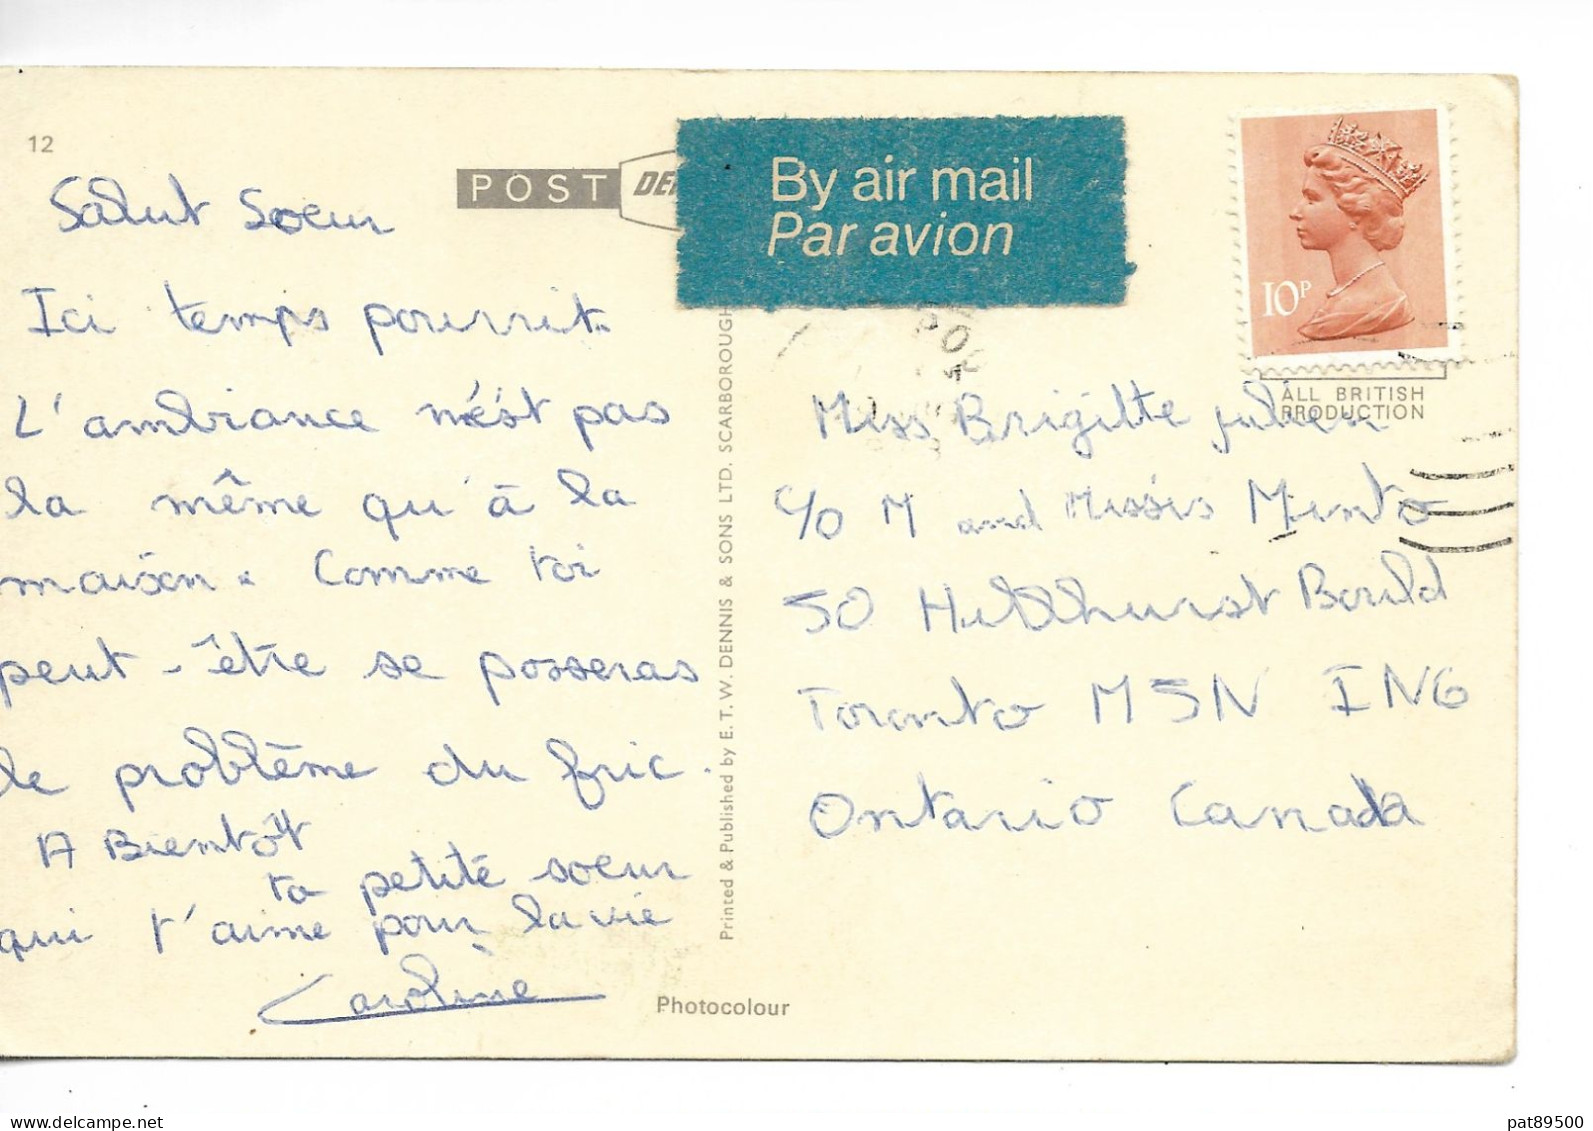 12
POST
By air mail
Par avion
10P
ALL BRITISH
PRODUCTION
Salut Soeur
Ici temps pourrit.
L'ambiance n'ést pas
la même qu'à la
maison. Comme toi
peut-être se posseras
le problème du fric.
A Bientôt
ta petite soeur
qui t'aime pour la vie
Caroline
Printed & Published by E. T. W. DENNIS & SONS LTD. SCARBOROUGH
Photocolour
Miss Brigitte julien
c/o M and Missis Minto
50 Hillhurst Bould
Toronto M5N 1N6
Ontario Canada
pat89500